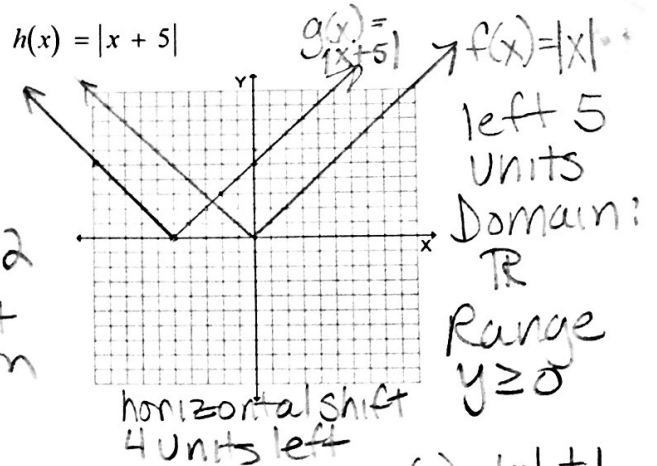 h(x) = |x + 5|
g(x) =
|x+5|
f(x)=|x|
left 5
units
Domain:
ℝ
Range
y≥0
Y
X
2
n
horizontal shift
4 units left